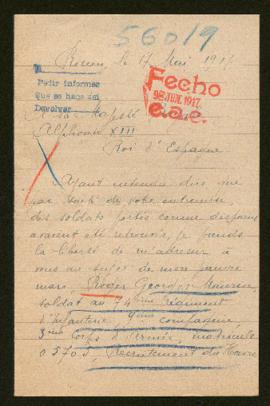 56019
Rouen, le 17 Mai 1917
Fecho
JUN. 1917
Pedir informes
que se haga así
Devolver
Sa Majesté
Alphonse XIII
Roi d'Espagne
Ayant entendu dire que
par suite de votre entremise
des soldats portés comme disparus
avaient été retrouvés, je prends
la liberté de m'adresser à
vous au sujet de mon pauvre
mari, Roger Georges Maurice,
soldat au 74ème Régiment
d'Infanterie, compagnie,
3ème Corps d'armée, matricule
0570, Recrutement du Havre